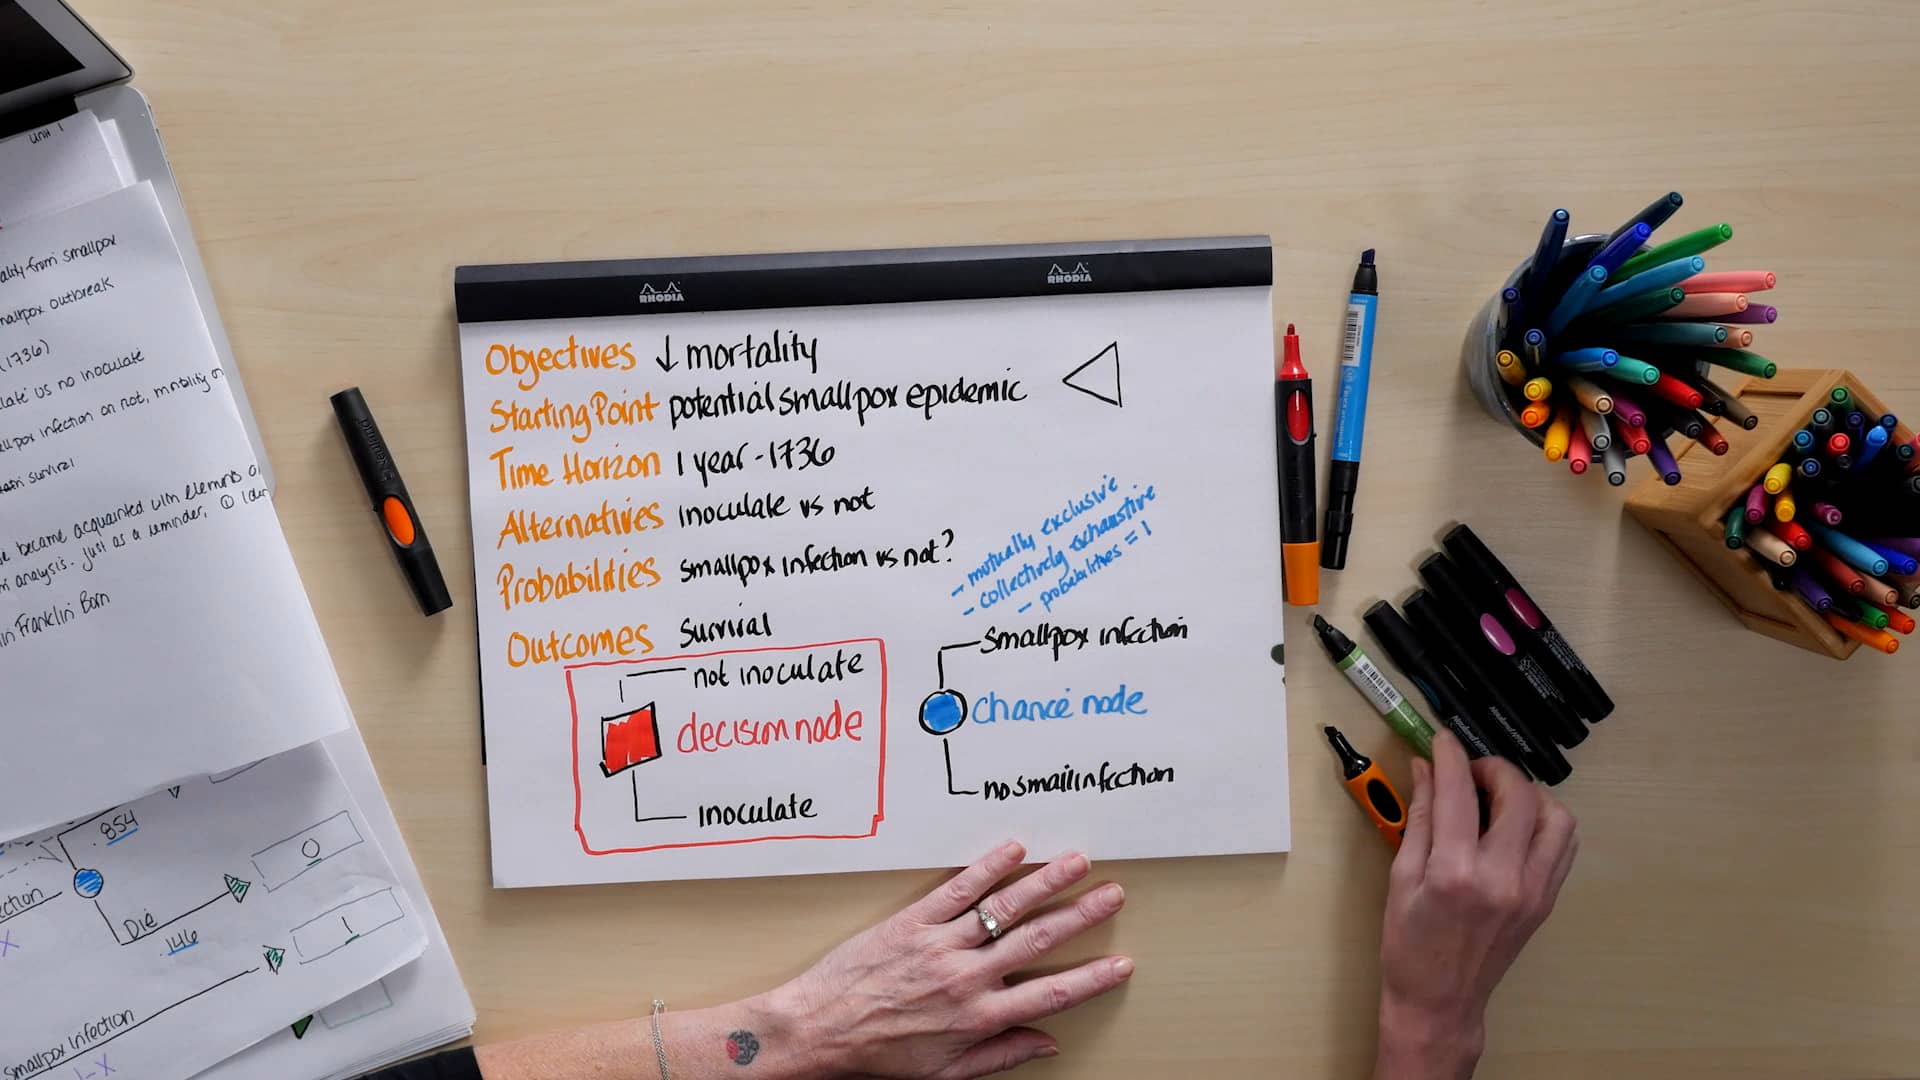 RHODIA RHODIA
Objectives ↓ mortality
Starting Point potential smallpox epidemic
Time Horizon 1 year - 1736
Alternatives inoculate vs not
Probabilities smallpox infection vs not?
Outcomes Survival
- mutually exclusive
- collectively exhaustive
- probabilities = 1
not inoculate
decision node
inoculate
Smallpox infection
Chance node
no small infection
Unit 1
ality from smallpox
mallpox outbreak
(1736)
late vs no inoculate
llpox infection or not, mortality or
survival
e became acquainted with elements o
analysis. just as a reminder, ①
in Franklin Born
.854
0
ction
Die
.146
1
X
Smallpox infection
1-X